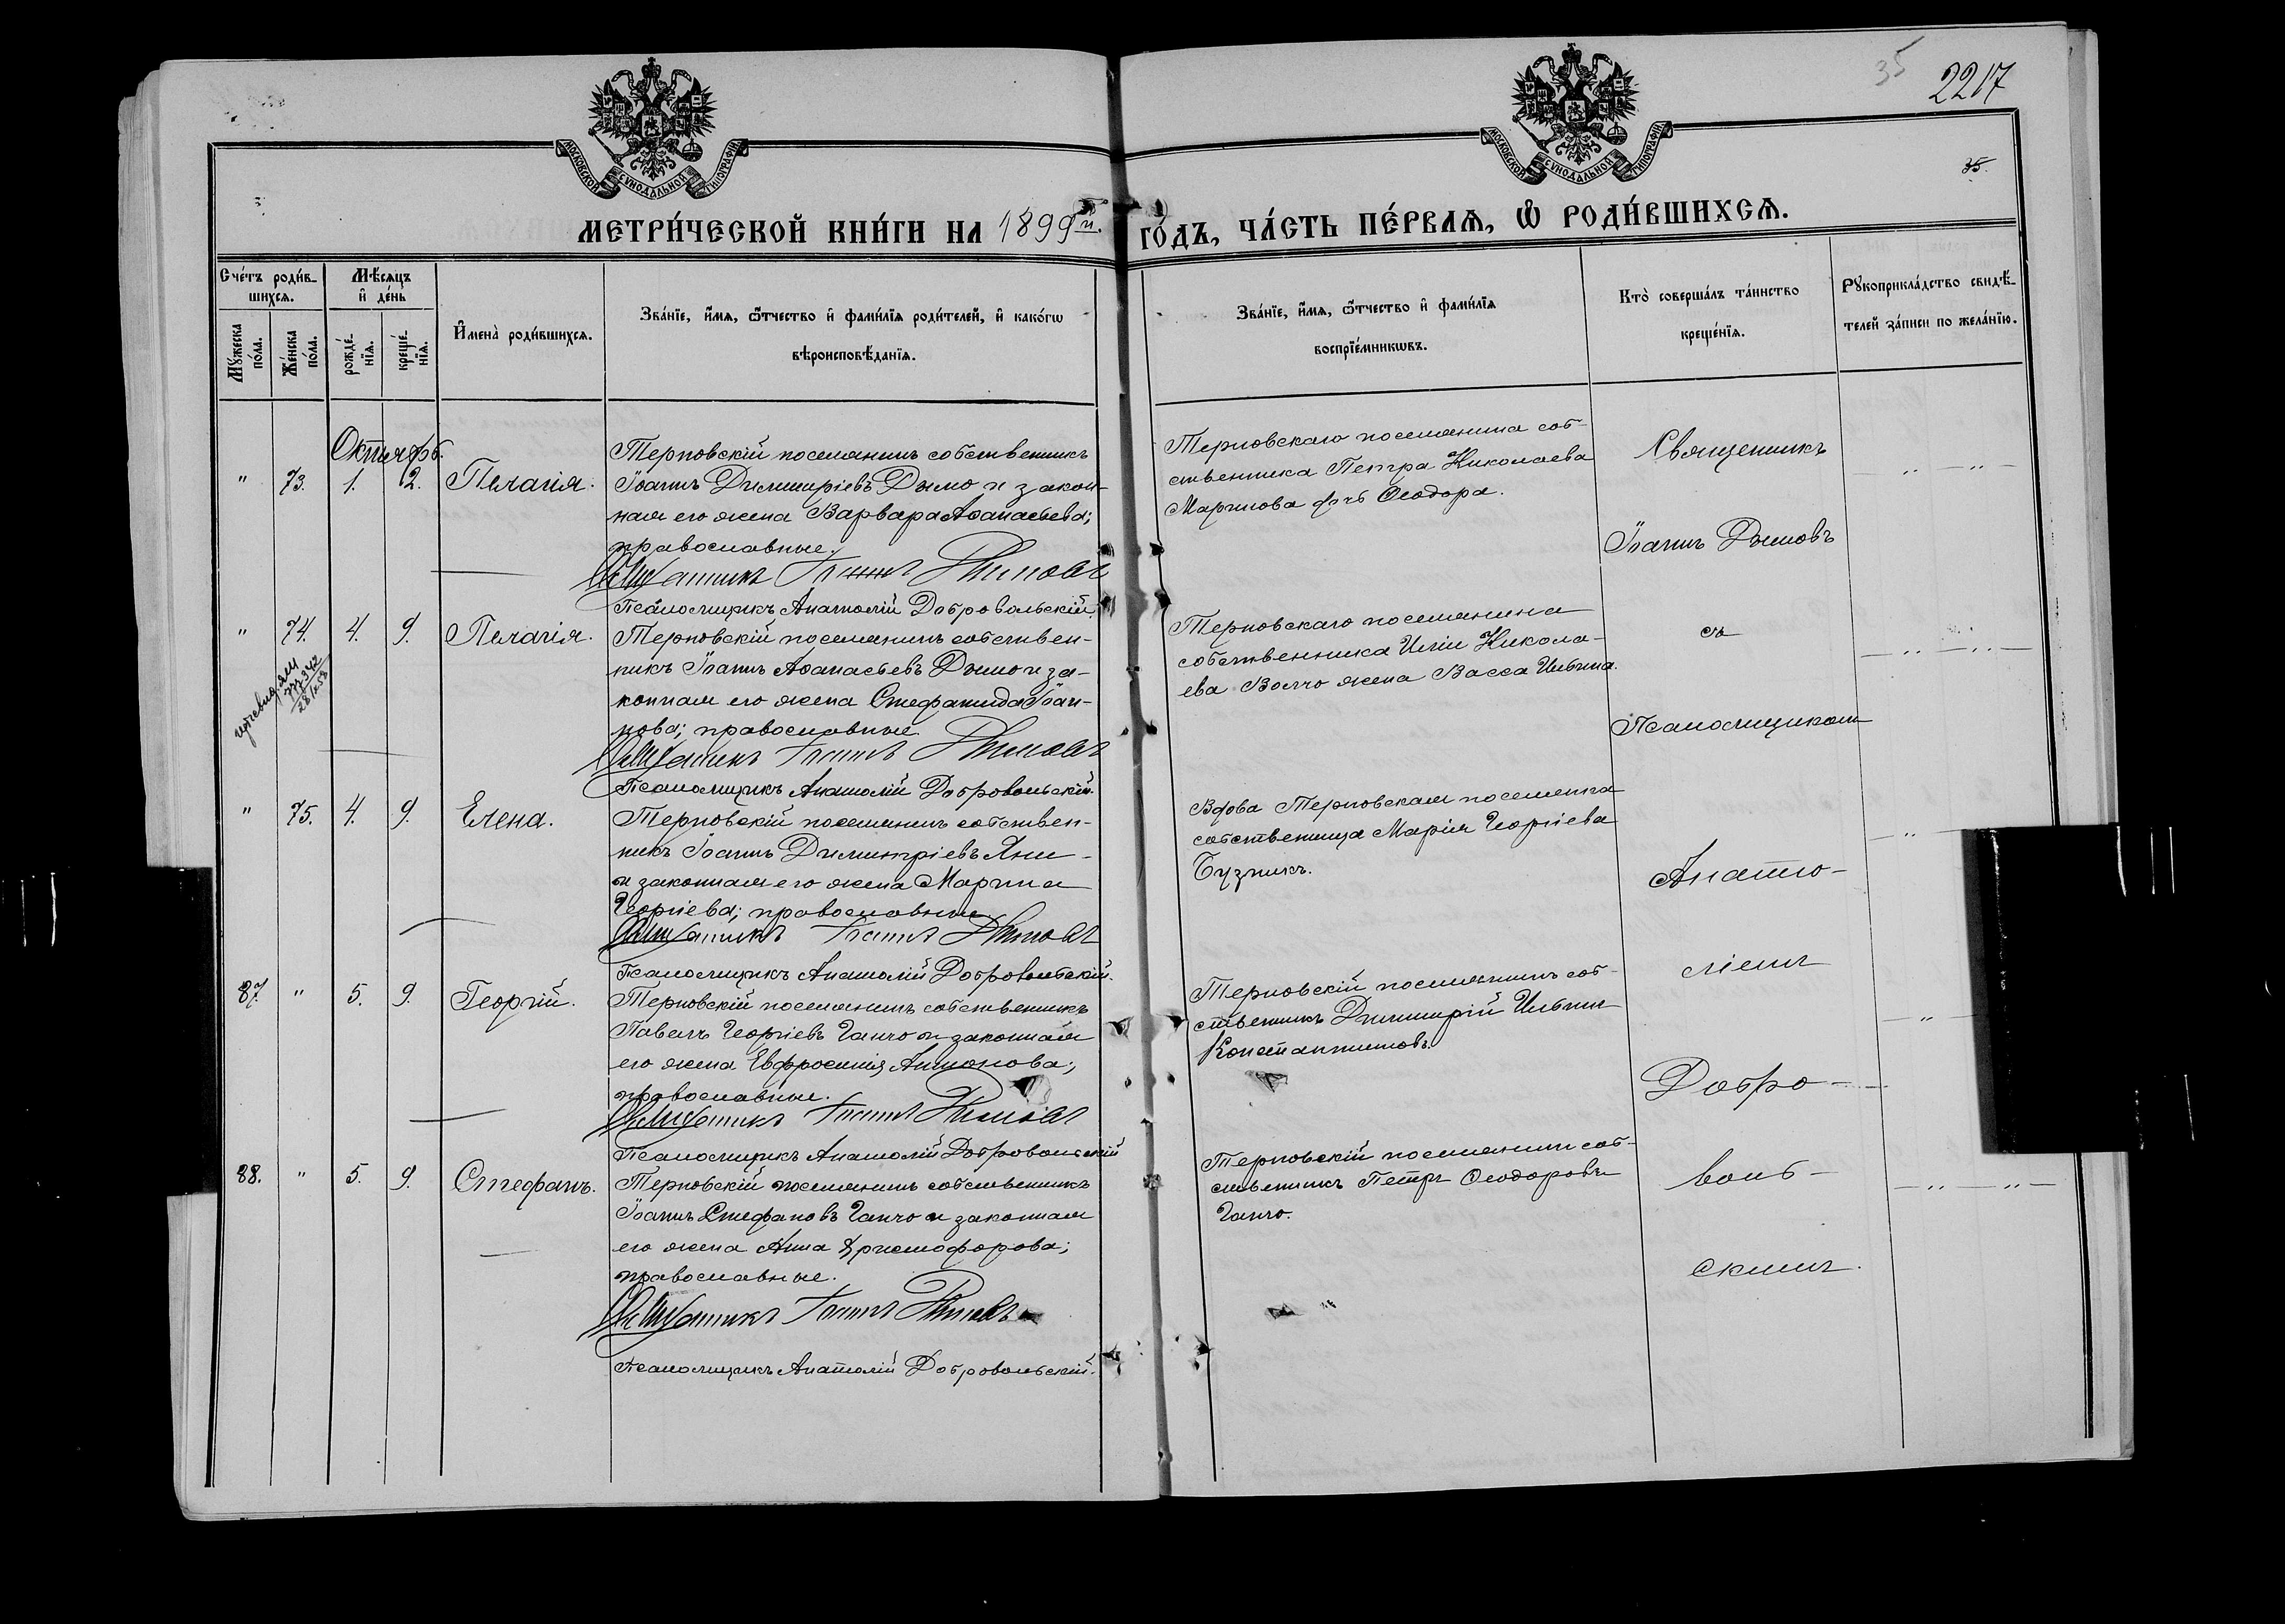 35
2217
35.
МОСКОВСКОЙ СѴНОДАЛЬНОЙ ТИПОГРАФІИ
МОСКОВСКОЙ СѴНОДАЛЬНОЙ ТИПОГРАФІИ
МЕТРИ́ЧЕСКОЙ КНИ́ГИ НА 1899й. ГО́ДЪ, ЧА́СТЬ ПЕ́РВАѦ, Ѿ РОДИ́ВШИХСѦ.
Сче́тъ роди́в-
шихсѧ.
Мѣ́сѧцъ
и҆ де́нь
Мꙋ́жеска
по́ла.
Же́нска
по́ла.
рожде́-
нїѧ.
креще́-
нїѧ.
И҆мена̀ роди́вшихсѧ.
Зва́нїе, и҆́мѧ, ѻ҆́тчество и҆ фами́лїѧ роди́телей, и҆ како́гѡ
вѣроисповѣ́данїѧ.
Зва́нїе, и҆́мѧ, ѻ҆́тчество и҆ фами́лїѧ
воспрїе́мникѡвъ.
Кто̀ соверша́лъ та́инство
креще́нїѧ.
Рꙋкоприкла́дство свидѣ́-
телей за́писи по жела́нїю.
Октябрь.
" 73. 1. 2. Пелагія.
Терновскій поселянинъ собственникъ
Іоаннъ Димитріевъ Дымо и закон-
ная его жена Варвара Аѳанасьева;
православные.
Священникъ Іоаннъ Дымовъ
Псаломщикъ Анатолій Добровольскій.
Терновскаго поселянина соб-
ственника Петра Николаева
Маринова дочь Ѳеодора.
Священникъ
Іоаннъ Дымовъ
" 74. 4. 9. Пелагія.
28/X 53
Терновскій поселянинъ собствен-
никъ Іоаннъ Аѳанасьевъ Дымо и за-
конная его жена Стефанида Іоан-
нова; православные.
Священникъ Іоаннъ Дымовъ
Псаломщикъ Анатолій Добровольскій.
Терновскаго поселянина
собственника Иліи Никола-
ева Волчо жена Васса Ильина.
съ
Псаломщикомъ
" 75. 4. 9. Елена.
Терновскій поселянинъ собствен-
никъ Іоаннъ Димитріевъ Яни-
и законная его жена Марина
Георгіева; православные.
Священникъ Іоаннъ Дымовъ
Псаломщикъ Анатолій Добровольскій.
Вдова Терновская поселянка
собственница Марія Георгіева
Бузникъ.
Анато-
ліемъ
87. " 5. 9. Георгій.
Терновскій поселянинъ собственникъ
Павелъ Георгіевъ Ганчо и законная
его жена Евфросинія Антонова;
православные.
Священникъ Іоаннъ Дымовъ
Псаломщикъ Анатолій Добровольскій
Терновскій поселянинъ соб-
ственникъ Димитрій Ильинъ
Константиновъ.
Добро-
88. " 5. 9. Стефанъ.
Терновскій поселянинъ собственникъ
Іоаннъ Стефановъ Ганчо и законная
его жена Анна Христофорова;
православные.
Священникъ Іоаннъ Дымовъ
Псаломщикъ Анатолій Добровольскій.
Терновскій поселянинъ соб-
ственникъ Петръ Ѳеодоровъ
Ганчо.
воль-
скимъ.